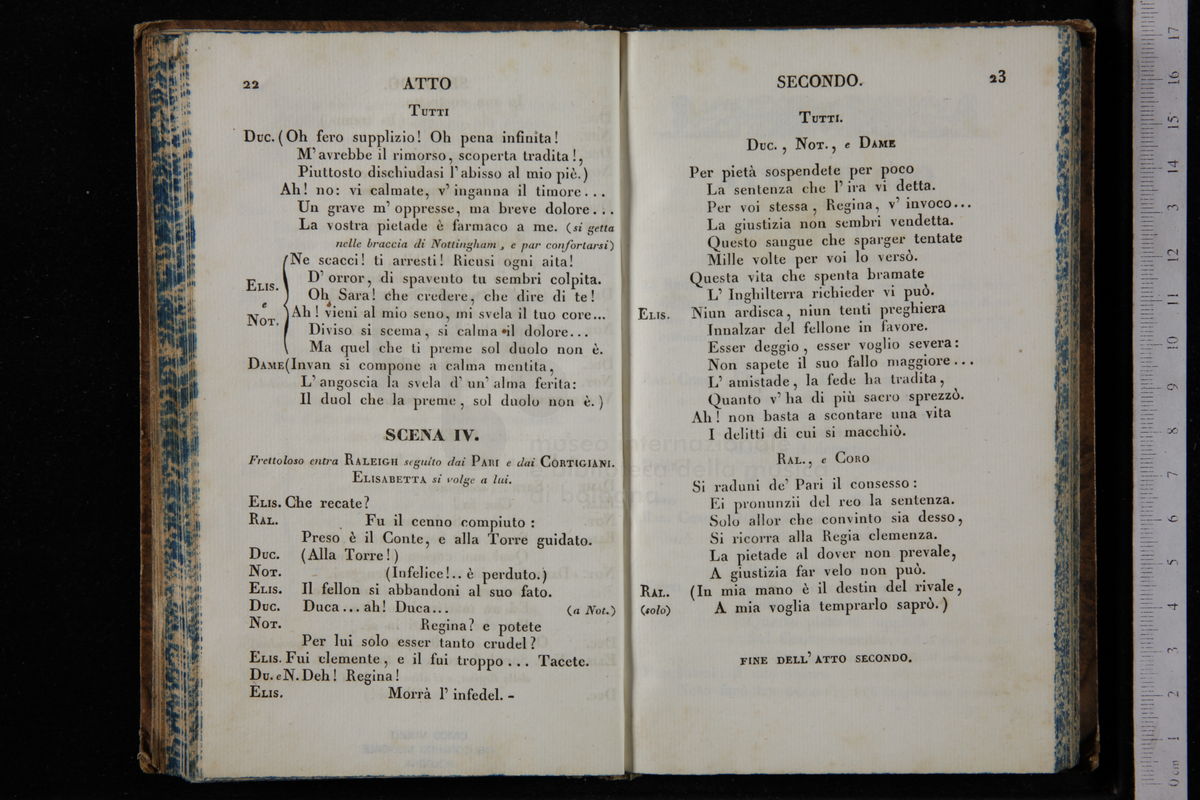 22 ATTO
TUTTI
DUC. (Oh fero supplizio! Oh pena infinita!
M'avrebbe il rimorso, scoperta tradita!,
Piuttosto dischiudasi l'abisso al mio piè.)
Ah! no: vi calmate, v'inganna il timore...
Un grave m'oppresse, ma breve dolore...
La vostra pietade è farmaco a me. (si getta
nelle braccia di Nottingham, e par confortarsi)
Ne scacci! ti arresti! Ricusi ogni aita!
ELIS. D'orror, di spavento tu sembri colpita.
e Oh Sara! che credere, che dire di te!
NOT. Ah! vieni al mio seno, mi svela il tuo core...
Diviso si scema, si calma il dolore...
Ma quel che ti preme sol duolo non è.
DAME (Invan si compone a calma mentita,
L'angoscia la svela d'un'alma ferita:
Il duol che la preme, sol duolo non è.)
SCENA IV.
Frettoloso entra RALEIGH seguíto dai PARI e dai CORTIGIANI.
ELISABETTA si volge a lui.
ELIS. Che recate?
RAL. Fu il cenno compiuto:
Preso è il Conte, e alla Torre guidato.
DUC. (Alla Torre!)
NOT. (Infelice!.. è perduto.)
ELIS. Il fellon si abbandoni al suo fato.
DUC. Duca... ah! Duca... (a Not.)
NOT. Regina? e potete
Per lui solo esser tanto crudel?
ELIS. Fui clemente, e il fui troppo... Tacete.
DU. e N. Deh! Regina!
ELIS. Morrà l'infedel. -
SECONDO. 23
TUTTI.
DUC., NOT., e DAME
Per pietà sospendete per poco
La sentenza che l'ira vi detta.
Per voi stessa, Regina, v'invoco...
La giustizia non sembri vendetta.
Questo sangue che sparger tentate
Mille volte per voi lo versò.
Questa vita che spenta bramate
L'Inghilterra richieder vi può.
ELIS. Niun ardisca, niun tenti preghiera
Innalzar del fellone in favore.
Esser deggio, esser voglio severa:
Non sapete il suo fallo maggiore...
L'amistade, la fede ha tradita,
Quanto v'ha di più sacro sprezzò.
Ah! non basta a scontare una vita
I delitti di cui si macchiò.
RAL., e CORO
Si raduni de' Pari il consesso:
Ei pronunzii del reo la sentenza.
Solo allor che convinto sia desso,
Si ricorra alla Regia clemenza.
La pietade al dover non prevale,
A giustizia far velo non può.
RAL. (In mia mano è il destin del rivale,
(solo) A mia voglia temprarlo saprò.)
FINE DELL'ATTO SECONDO.
museo internazionale
e biblioteca della musica
di bologna
0 cm 1 2 3 4 5 6 7 8 9 10 11 12 13 14 15 16 17